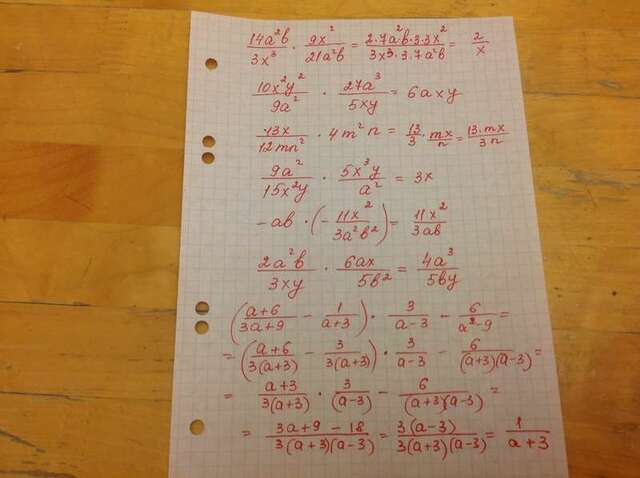 14a²b/3x³ · 9x²/21a²b = 2·7a²·b·3·3x²/3x³·3·7a²b = 2/x
10x²y²/9a² · 27a³/5xy = 6axy
13x/12mn² · 4m²n = 13/3 · mx/n = 13·mx/3n
9a²/15x²y · 5x³y/a² = 3x
-ab · (-11x²/3a²b²) = 11x²/3ab
2a²b/3xy · 6ax/5b² = 4a³/5by
(a+6/3a+9 - 1/a+3) · 3/a-3 - 6/a²-9 =
= (a+6/3(a+3) - 3/3(a+3)) · 3/a-3 - 6/(a+3)(a-3) =
= a+3/3(a+3) · 3/(a-3) - 6/(a+3)(a-3) =
= 3a+9-18/3(a+3)(a-3) = 3(a-3)/3(a+3)(a-3) = 1/a+3